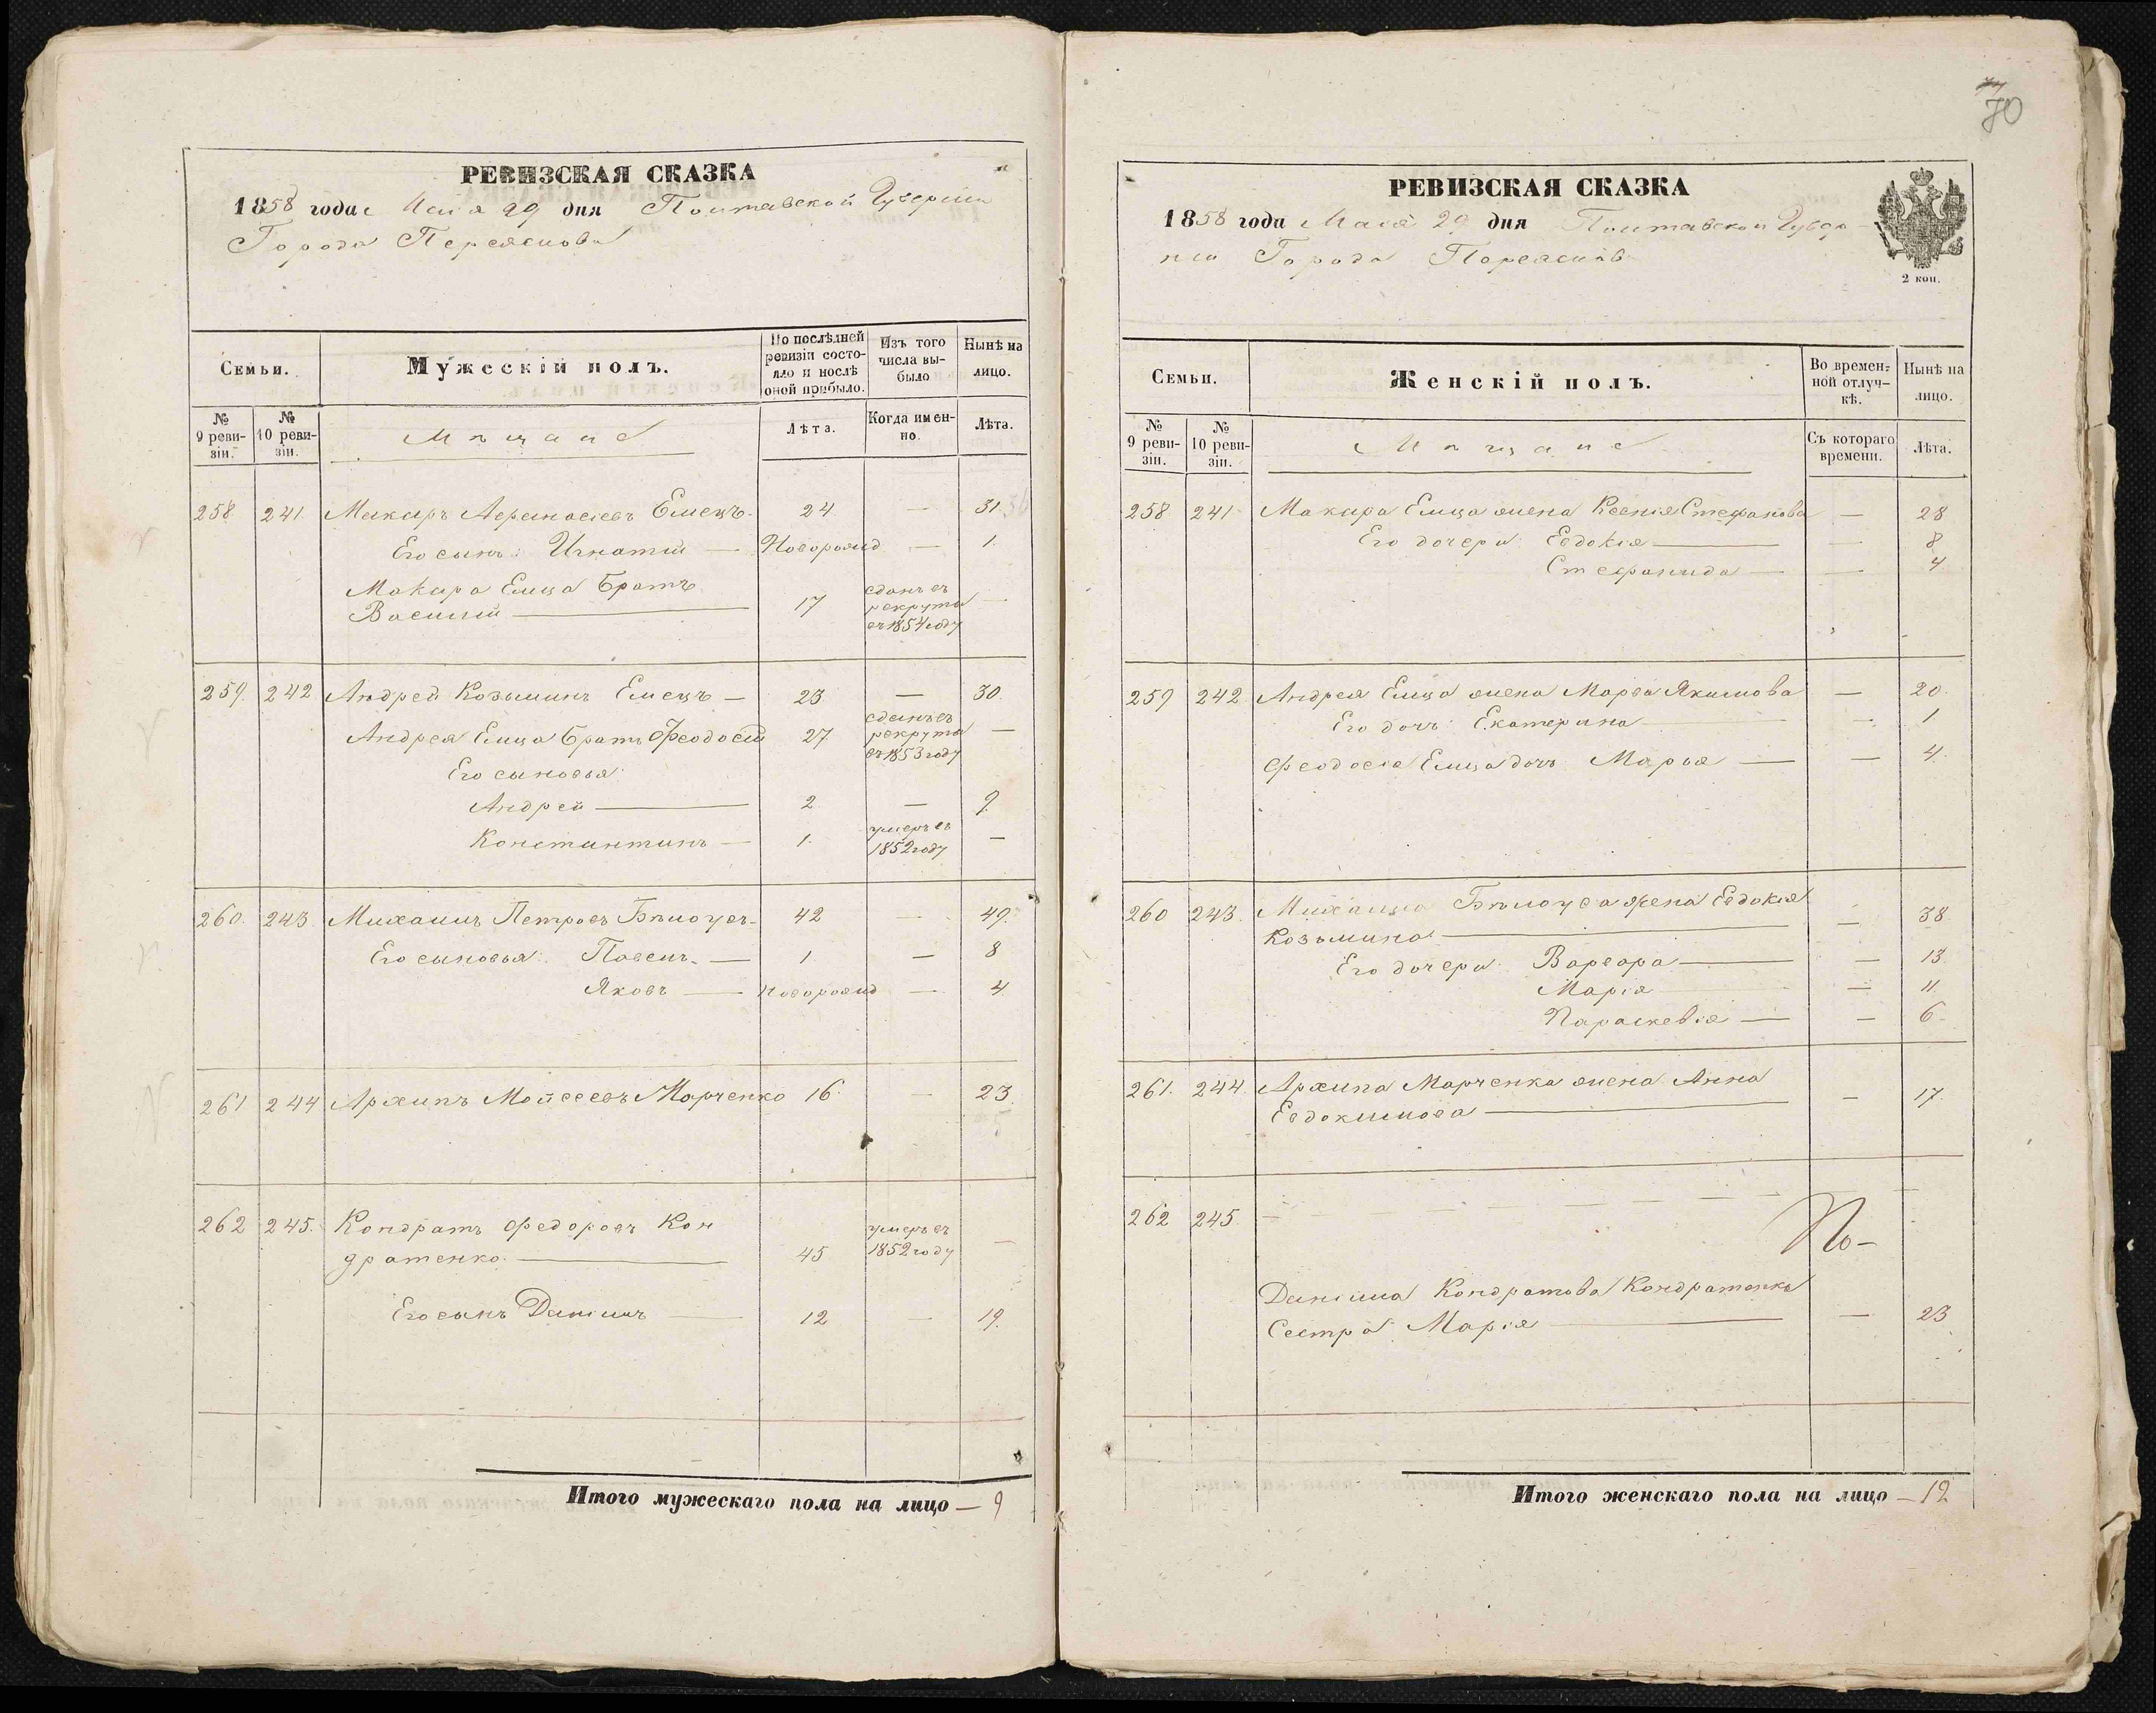 70
РЕВИЗСКАЯ СКАЗКА
1858 года Мая 29 дня Полтавской Губерніи
Города Переяслова
Семьи.
Мужескій полъ.
По послѣдней ревизіи состояло и послѣ оной прибыло.
Изъ того числа выбыло
Нынѣ на лицо.
№ 9 ревизіи.
№ 10 ревизіи.
Мѣщане
Лѣта.
Когда именно.
Лѣта.
258 241 Макаръ Афанасіевъ Емецъ 24 — 31
Его сынъ: Игнатій — Новорожд — 1
Макара Емца братъ
Василій — 17 сданъ въ рекруты въ 1854 году —
259 242 Андрей Козьминъ Емецъ — 23 — 30
Андрея Емца братъ Феодосій 27 сданъ въ рекруты въ 1853 году —
Его сыновья:
Андрей — 2 — 9
Константинъ — 1 умеръ въ 1852 году —
260 243 Михаилъ Петровъ Бѣлоусъ 42 — 49
Его сыновья: Павелъ — 1 — 8
Яковъ — новорожд — 4
261 244 Архипъ Мойсеевъ Марченко 16 — 23
262 245 Кондратъ Федоровъ Кон
дратенко — 45 умеръ въ 1852 году —
Его сынъ Даніилъ — 12 — 19
Итого мужескаго пола на лицо — 9
РЕВИЗСКАЯ СКАЗКА
1858 года Мая 29 дня Полтавской Губер
ніи Города Переяслова
2 коп.
Семьи.
Женскій полъ.
Во временной отлучкѣ.
Нынѣ на лицо.
№ 9 ревизіи.
№ 10 ревизіи.
Мѣщане
Съ котораго времени.
Лѣта.
258 241 Макара Емца жена Ксенія Стефанова — 28
Его дочери: Евдокія — — 8
Стефанида — — 4
259 242 Андрея Емца жена Марѳа Якимова — 20
Его дочь: Екатерина — — 1
Феодосія Емца дочь Марья — — 4
260 243 Михаила Бѣлоуса жена Евдокія
Козьмина — — 38
Его дочери: Варвара — — 13
Марія — 11
Параскевія — — 6
261 244 Архипа Марченка жена Анна
Евдокимова — — 17
262 245 —
Даніила Кондратова Кондратенка
Сестра Марія — — 23
Итого женскаго пола на лицо — 12